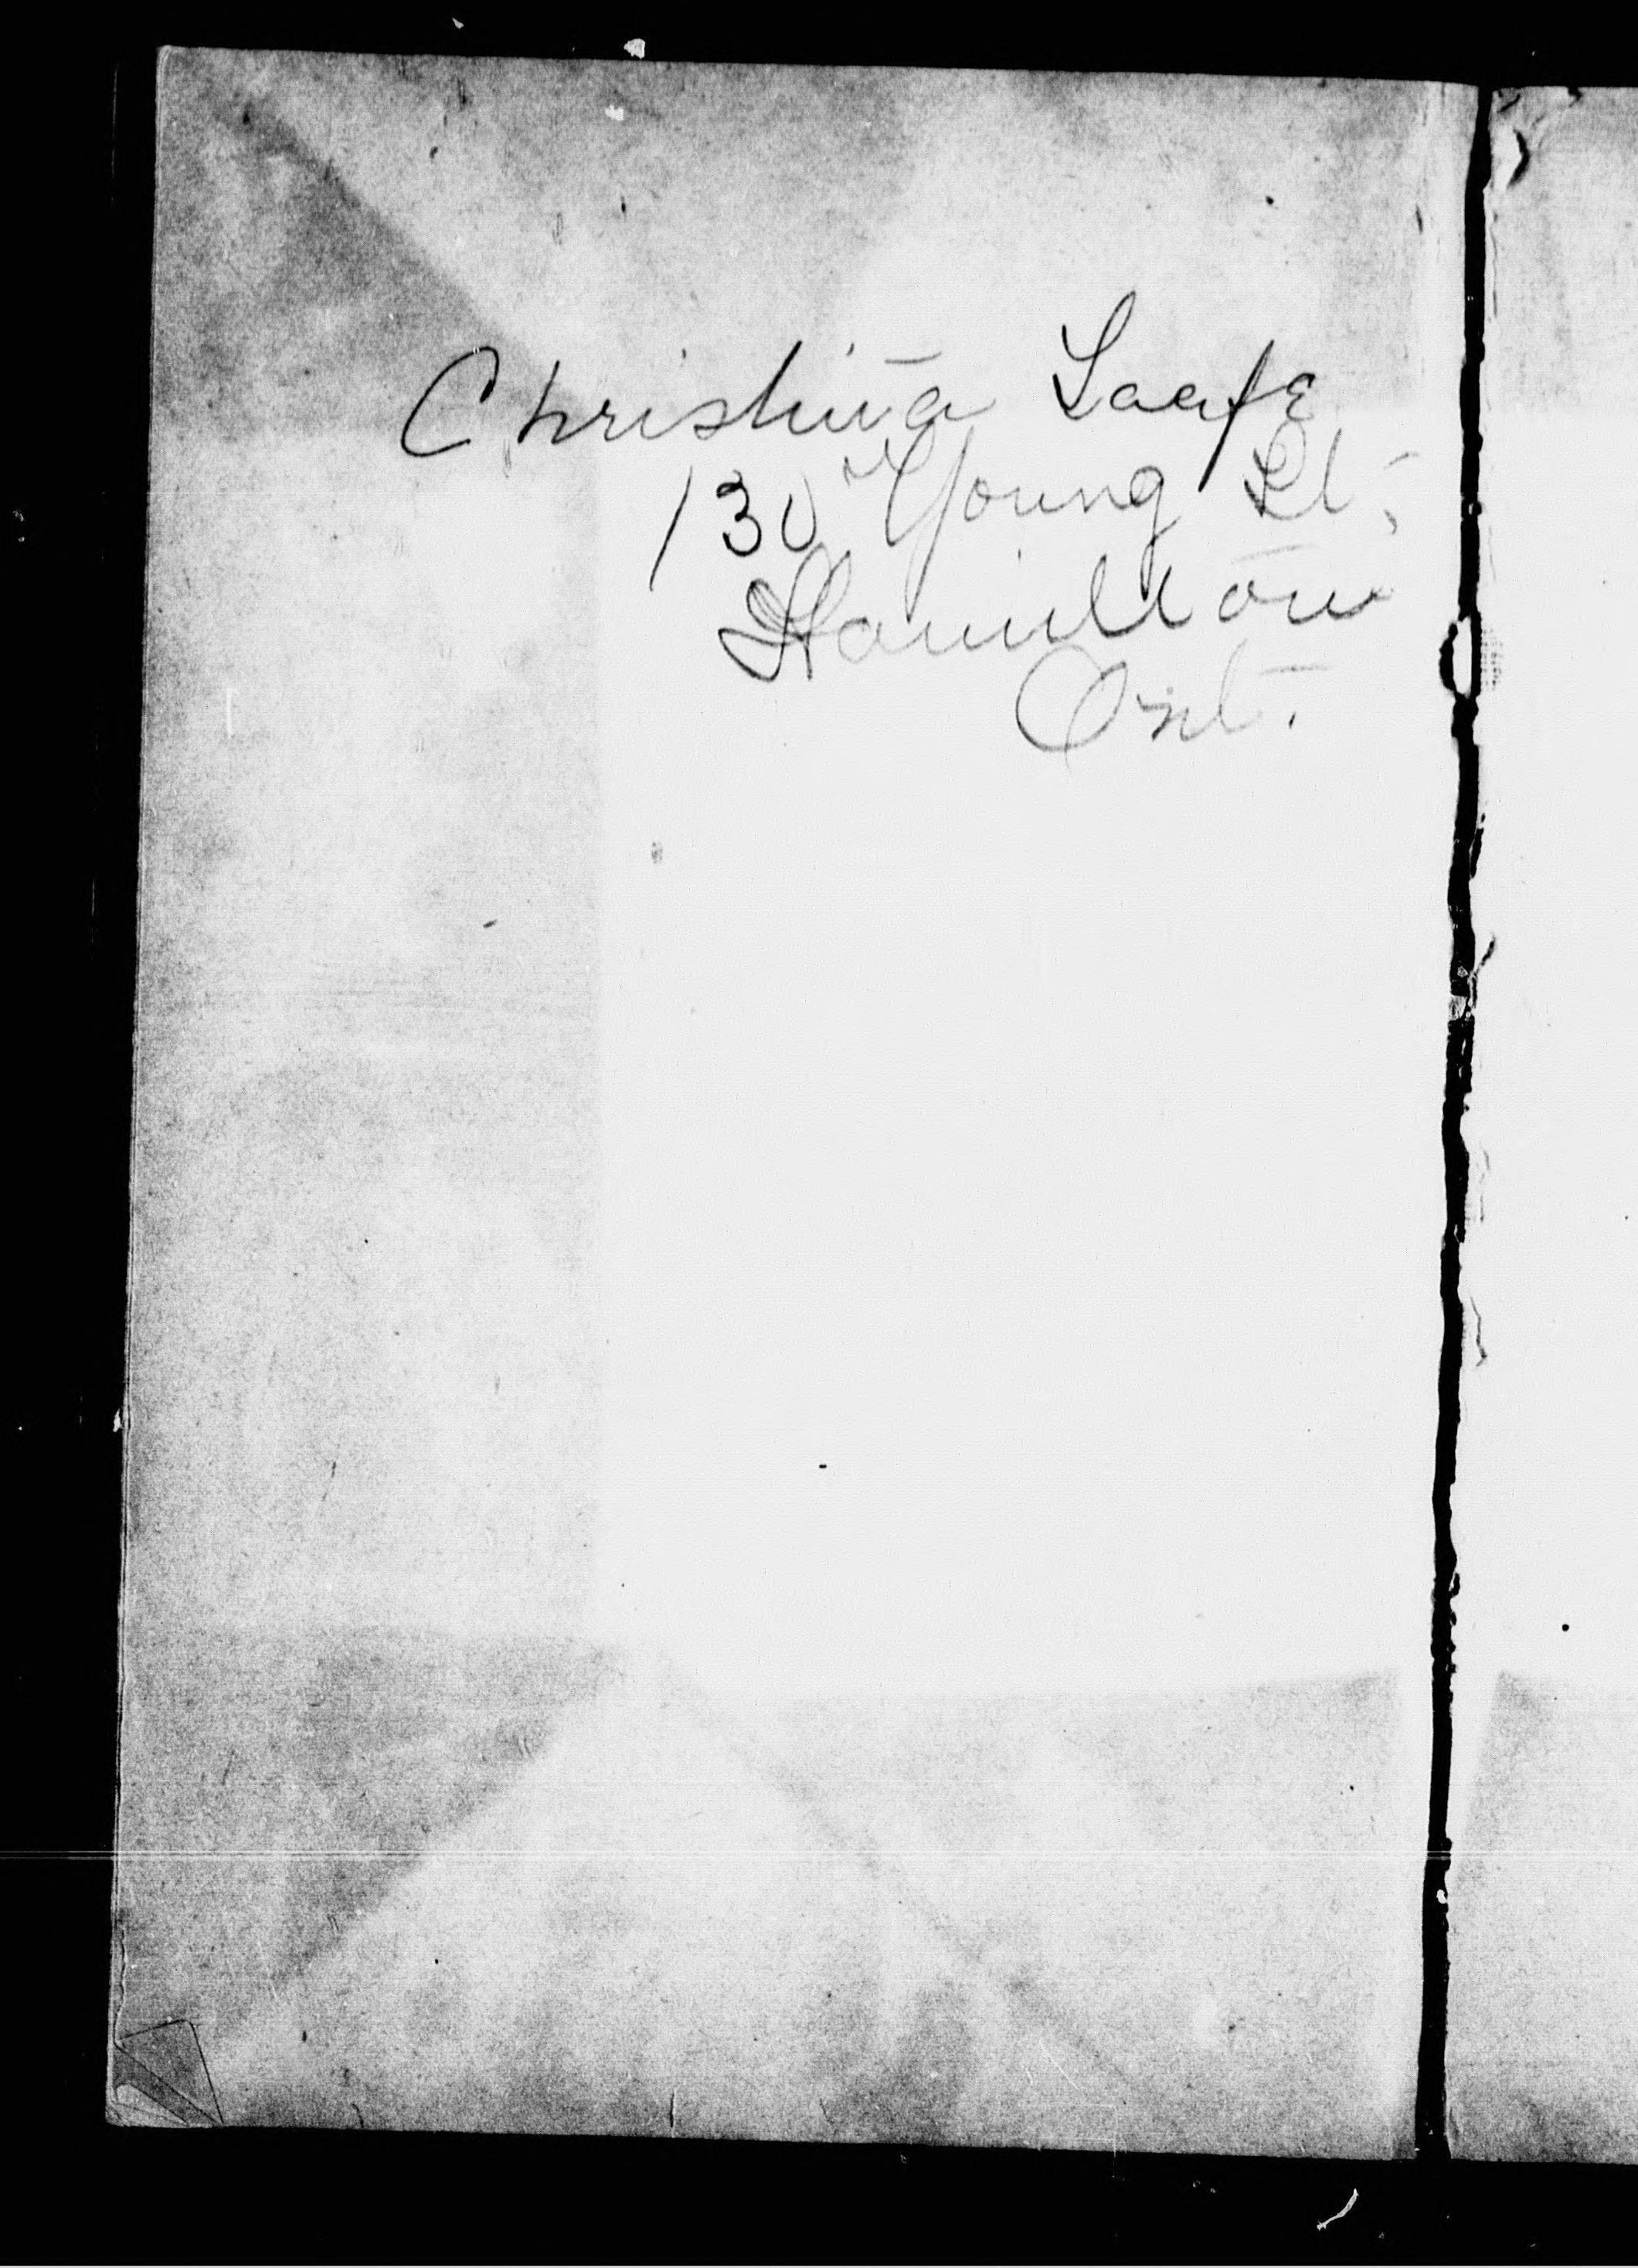 Christina Laafe
130 Young St.
Hamilton
Ont.